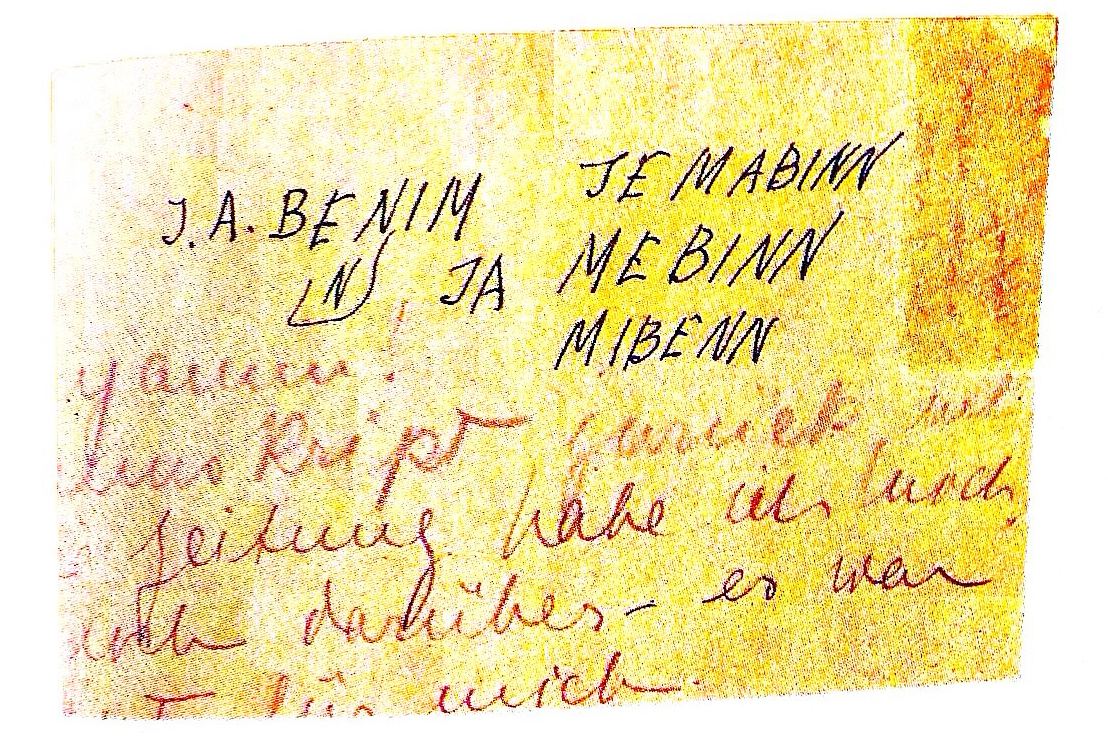 J.A. BENIM JE MABINN
N JA MEBINN
MIBENN
zurück
Zeitung habe ich noch
darüber – es war
für mich.